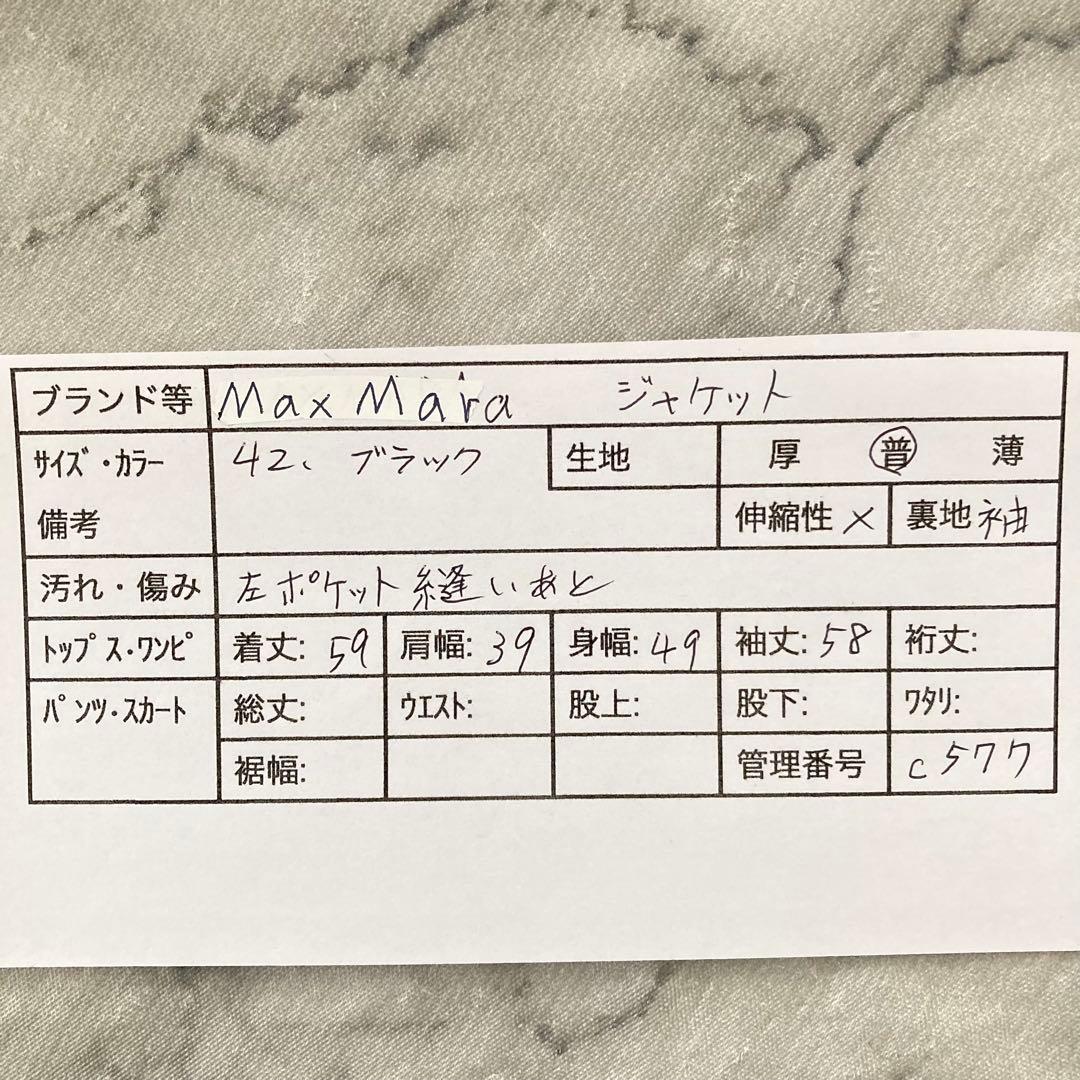 ブランド等 Max Mara ジャケット
サイズ・カラー 42、ブラック 生地 厚 普 薄
備考 伸縮性 × 裏地 袖
汚れ・傷み 左ポケット縫いあと
トップス・ワンピ 着丈: 59 肩幅: 39 身幅: 49 袖丈: 58 裄丈:
パンツ・スカート 総丈: ウエスト: 股上: 股下: ワタリ:
裾幅: 管理番号 c577